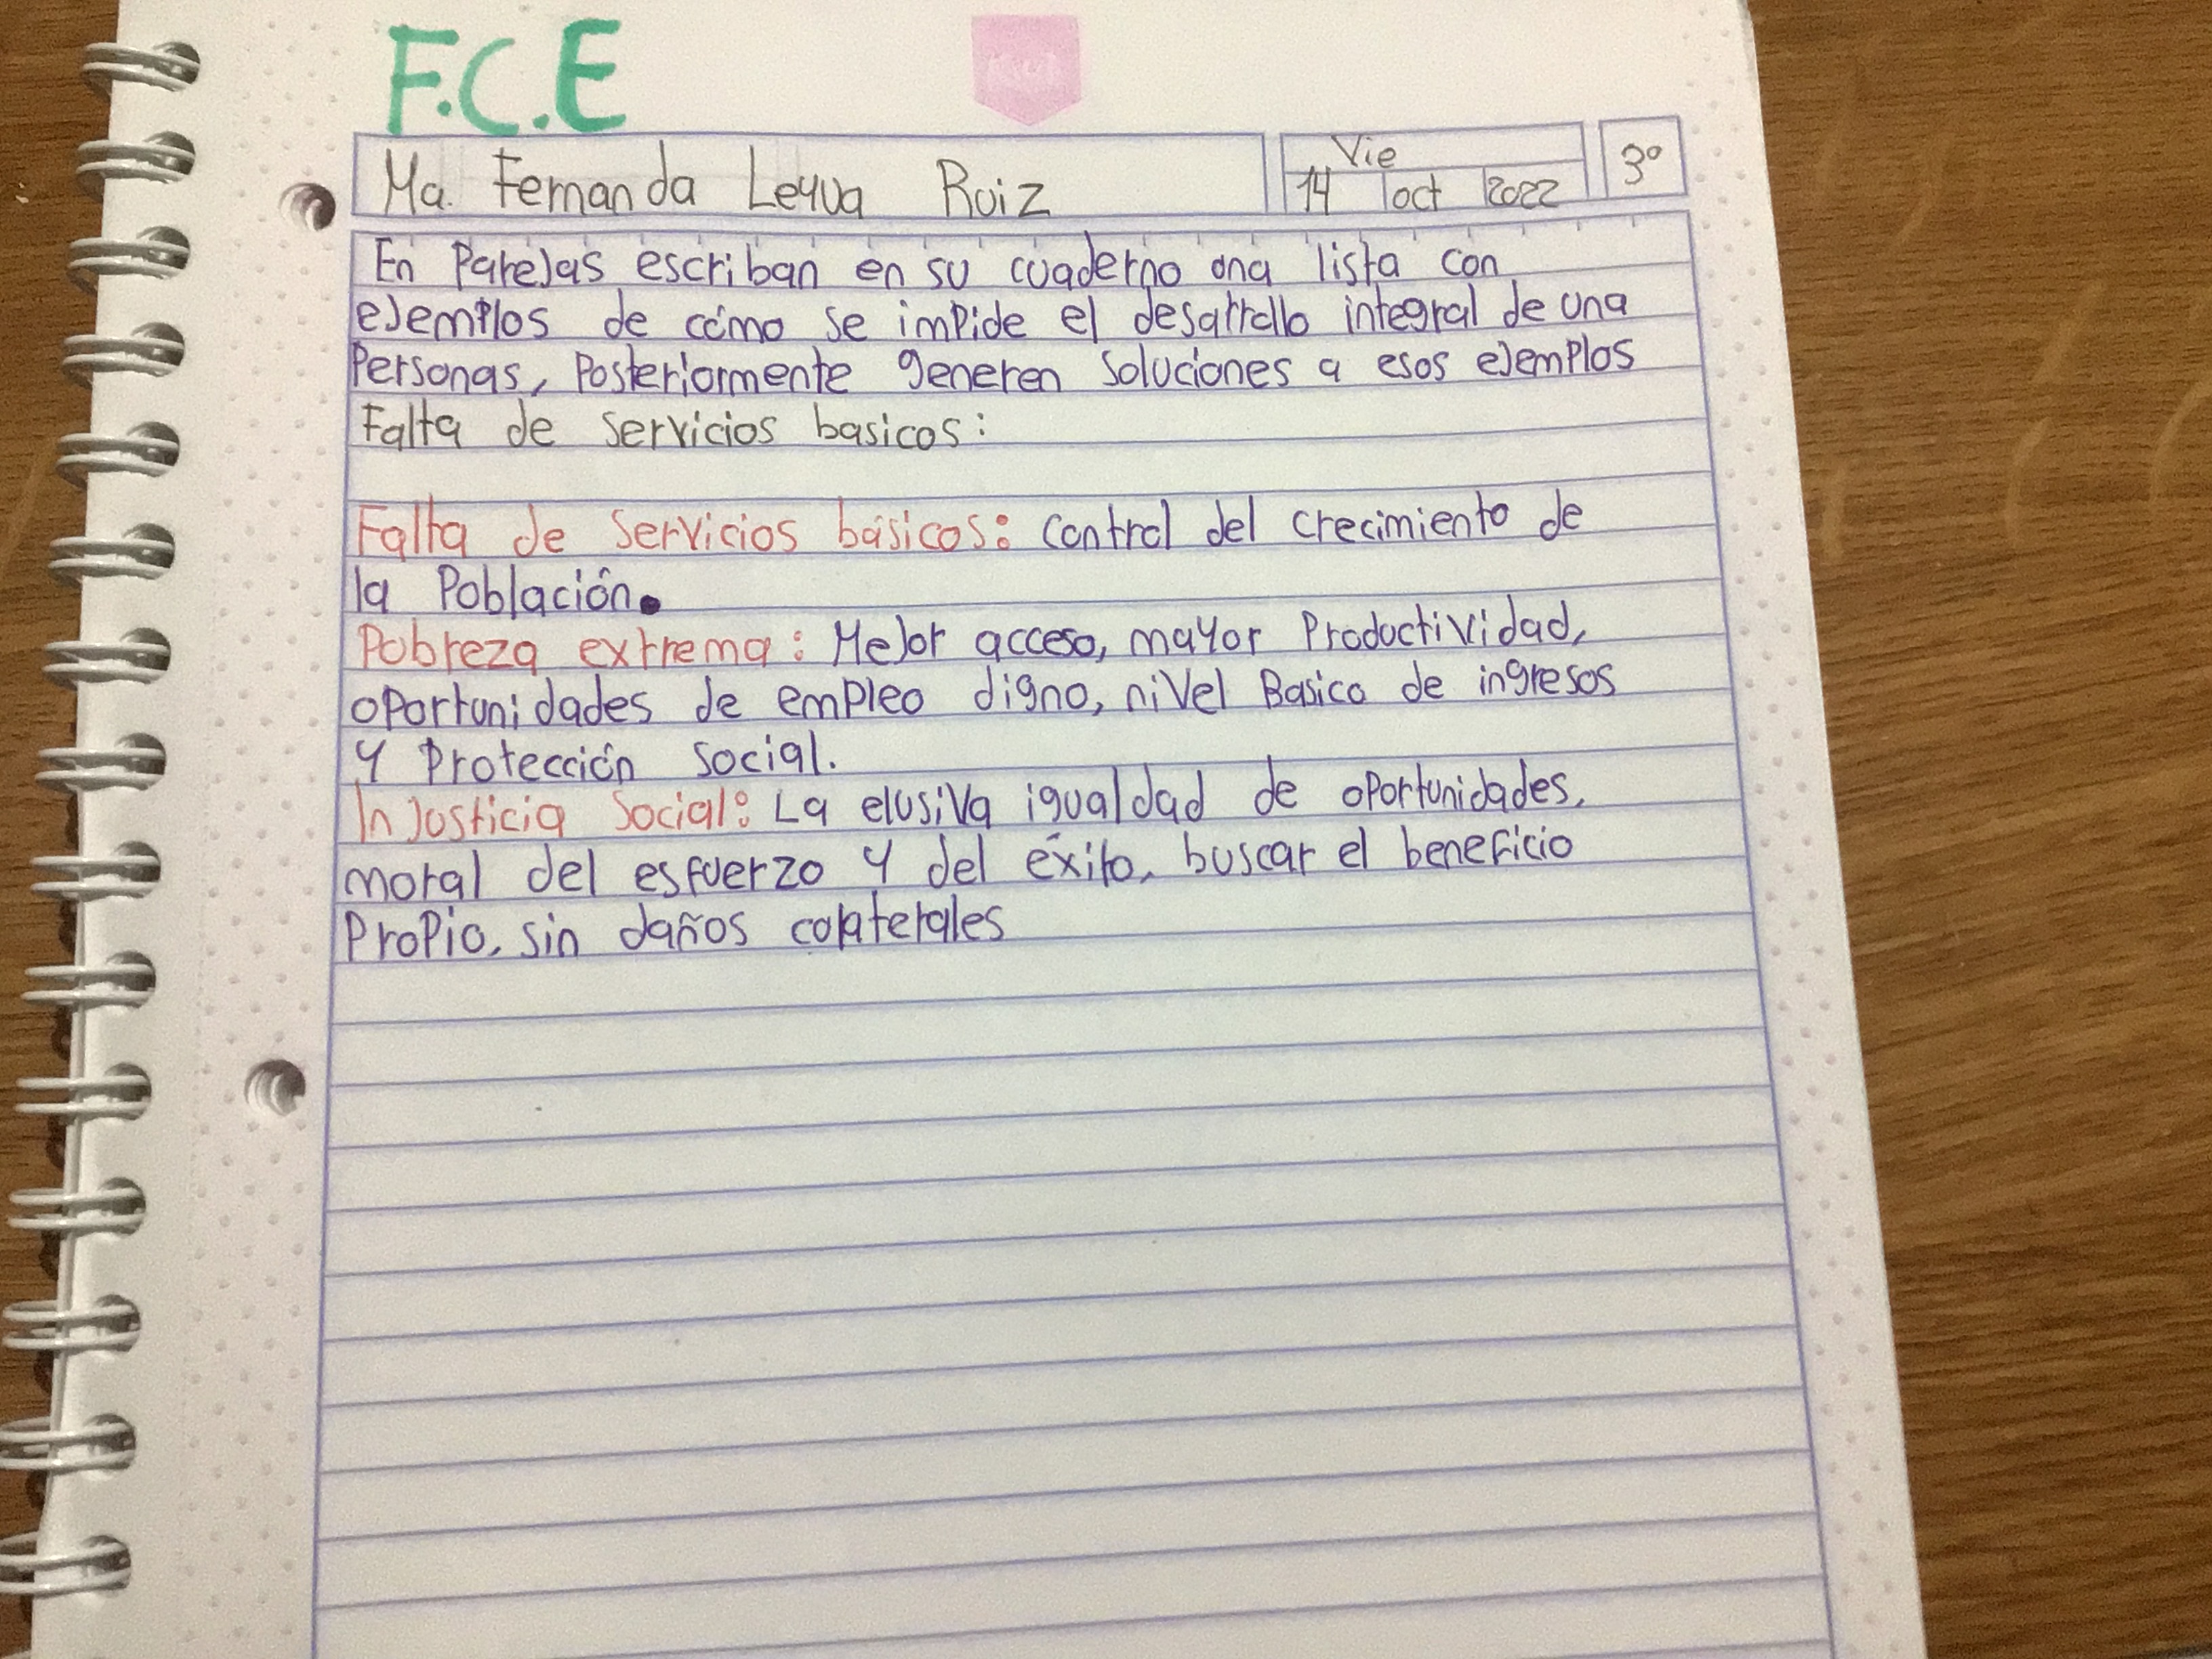 F.C.E
Ma. Fernanda Leyva Ruiz
Vie
14 oct 2022
3º
En Parejas escriban en su cuaderno una lista con
ejemplos de cómo se impide el desarrollo integral de una
Personas, Posteriormente generen soluciones a esos ejemplos
Falta de servicios basicos:
Falta de servicios básicos: Control del crecimiento de
la Población.
Pobreza extrema: Mejor acceso, mayor Productividad,
oportunidades de empleo digno, nivel Basico de ingresos
y Protección social.
Injusticia Social: La elusiva igualdad de oportunidades,
moral del esfuerzo y del éxito, buscar el beneficio
Propio, sin daños colaterales